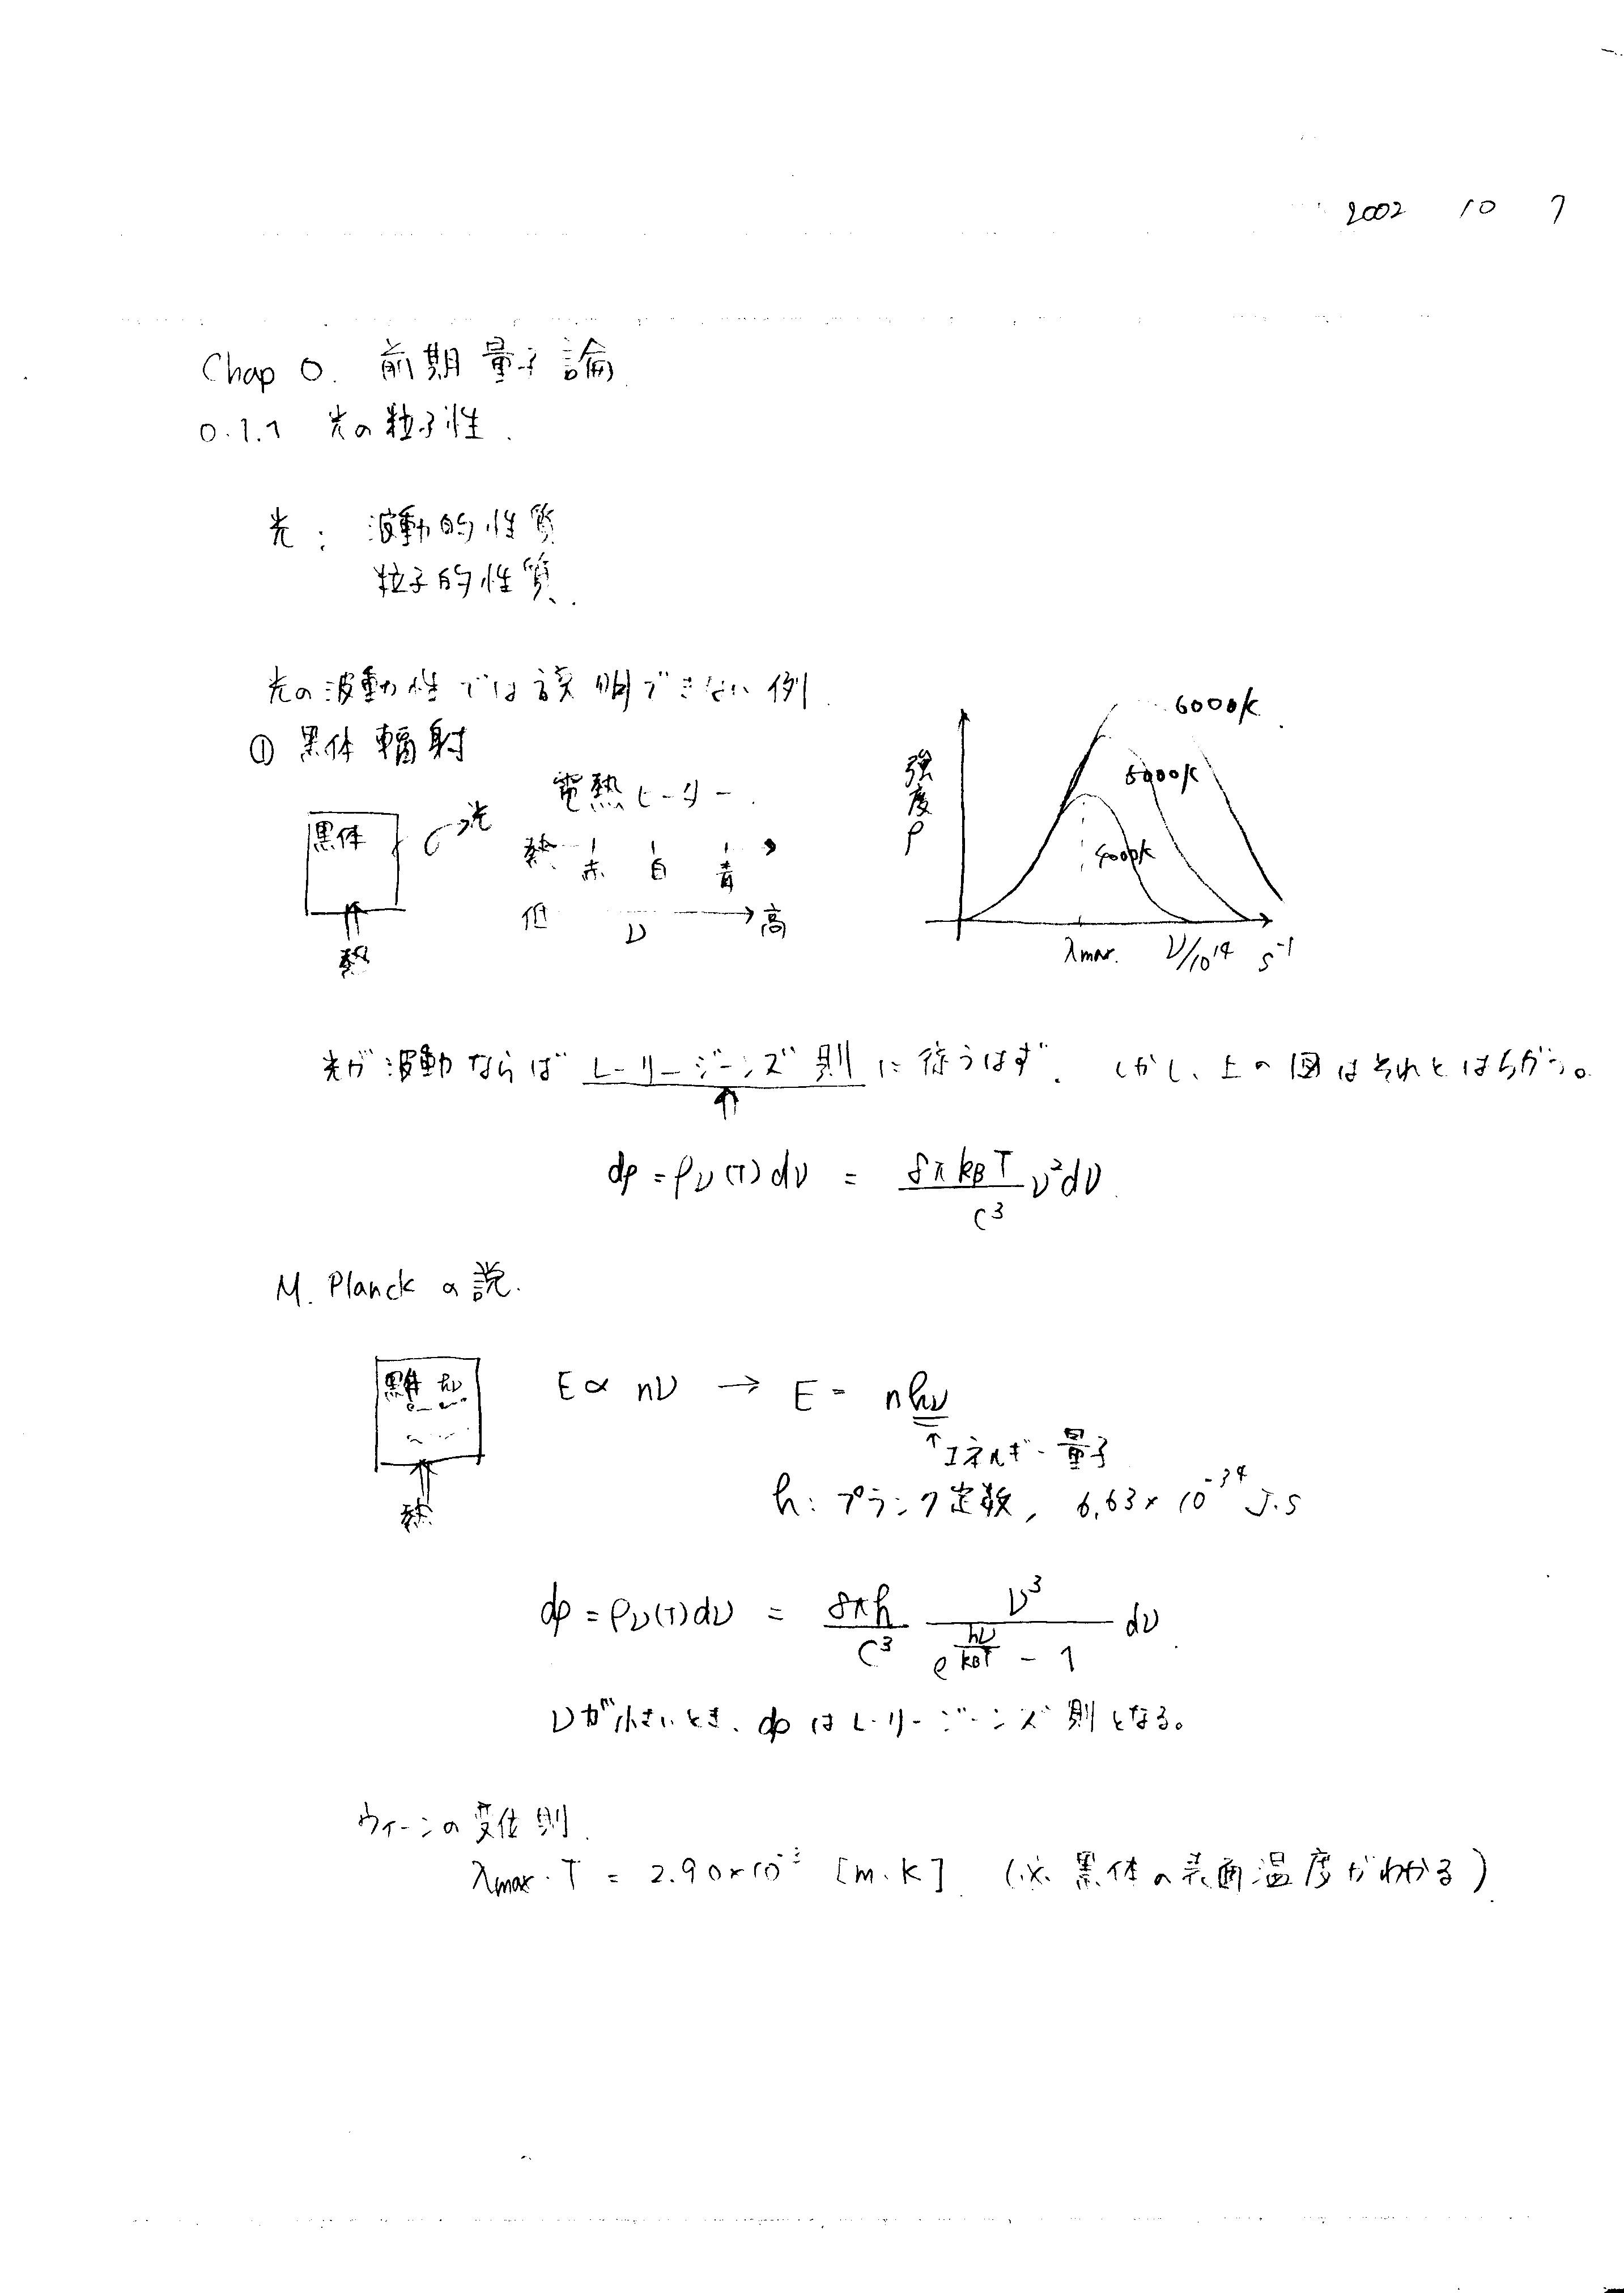 2002 10 7
Chap 0. 前期量子論
0.1.1 光の粒子性.
光: 波動的性質
粒子的性質.
光の波動性では説明できない例.
① 黒体輻射
黒体
光
熱
電熱ヒーター.
熱 赤 白 青
低 ν 高
強度ρ
6000K
5000K
4000K
λmax. ν/10¹⁴ s⁻¹
光が波動ならばレーリージーンズ則に従うはず. しかし、上の図はそれとはちがう。
dρ = ρν(T)dν = 8πkBT/c³ ν²dν.
M. Planck の説.
黒体 hν
熱
E ∝ nν → E = nhν
↑エネルギー量子
h: プランク定数, 6.63×10⁻³⁴ J·s
dρ = ρν(T)dν = 8πh/c³ ν³/(e^(hν/kBT) - 1) dν.
νが小さいとき、dρはレーリージーンズ則となる。
ウィーンの変位則.
λmax·T = 2.90×10⁻³ [m·K]. (※ 黒体の表面温度がわかる)